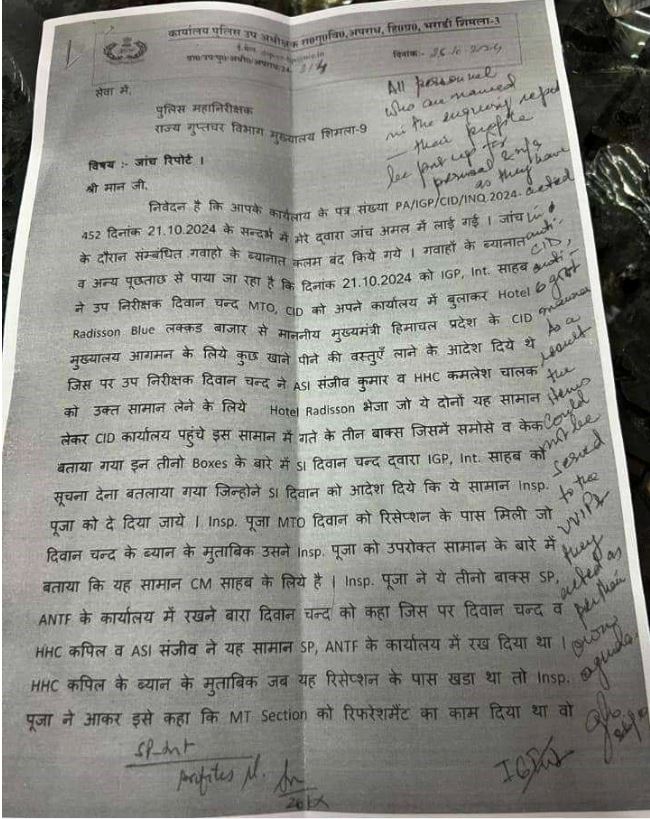 कार्यालय पुलिस उप अधीक्षक रा०गु०वि०, अपराध, हि०प्र०, भराड़ी शिमला-3
दिनांक:- 25.10.2024
सेवा में,
पुलिस महानिरीक्षक
राज्य गुप्तचर विभाग मुख्यालय शिमला-9
विषय :- जांच रिपोर्ट ।
श्री मान जी,
निवेदन है कि आपके कार्यालय के पत्र संख्या PA/IGP/CID/INQ.2024-
452 दिनांक 21.10.2024 के सन्दर्भ में मेरे द्वारा जांच अमल में लाई गई । जांच
के दौरान सम्बंधित गवाहो के ब्यानात कलम बंद किये गये । गवाहों के ब्यानात
व अन्य पूछताछ से पाया जा रहा है कि दिनांक 21.10.2024 को IGP, Int. साहब
ने उप निरीक्षक दिवान चन्द MTO, CID को अपने कार्यालय में बुलाकर Hotel
Radisson Blue लक्कड बाजार से माननीय मुख्यमंत्री हिमाचल प्रदेश के CID
मुख्यालय आगमन के लिये कुछ खाने पीने की वस्तुएँ लाने के आदेश दिये थे
जिस पर उप निरीक्षक दिवान चन्द ने ASI संजीव कुमार व HHC कमलेश चालक
को उक्त सामान लेने के लिये Hotel Radisson भेजा जो ये दोनों यह सामान
लेकर CID कार्यालय पहुंचे इस सामान में गते के तीन बाक्स जिसमें समोसे व केक
बताया गया इन तीनो Boxes के बारे में SI दिवान चन्द द्वारा IGP, Int. साहब को
सूचना देना बतलाया गया जिन्होने SI दिवान को आदेश दिये कि ये सामान Insp.
पूजा को दे दिया जाये । Insp. पूजा MTO दिवान को रिसेप्शन के पास मिली जो
दिवान चन्द के ब्यान के मुताबिक उसने Insp. पूजा को उपरोक्त सामान के बारे में
बताया कि यह सामान CM साहब के लिये है । Insp. पूजा ने ये तीनो बाक्स SP,
ANTF के कार्यालय में रखने बारा दिवान चन्द को कहा जिस पर दिवान चन्द व
HHC कपिल व ASI संजीव ने यह सामान SP, ANTF के कार्यालय में रख दिया था ।
HHC कपिल के ब्यान के मुताबिक जब यह रिसेप्शन के पास खडा था तो Insp.
पूजा ने आकर इसे कहा कि MT Section को रिफरेशमैंट का काम दिया था वो
All personnel
who are named
in the enquiry report
— their profile
be put up for
perusal & n/a
as they have
acted
in a
anti-
CID,
anti-
govt
manner
As a
result
the
items
could
not be
served
to the
VVIPs
they
acted as
per their
own
agenda.